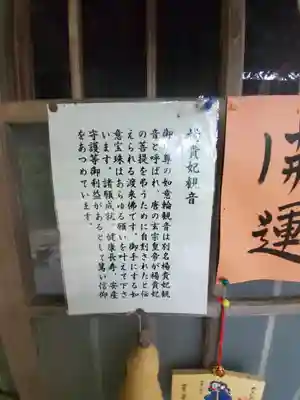 開運
楊貴妃観音
御本尊の如意輪観音は別名楊貴妃観
音と呼ばれ、唐の玄宗皇帝が楊貴妃
の菩提を弔うために自刻されたと伝
えられる渡来佛です。御手にする如
意宝珠はあらゆる願いを叶えて下さ
います。諸願成就、健康長寿、安産
守護等御利益があるとして篤い信仰
をあつめています。